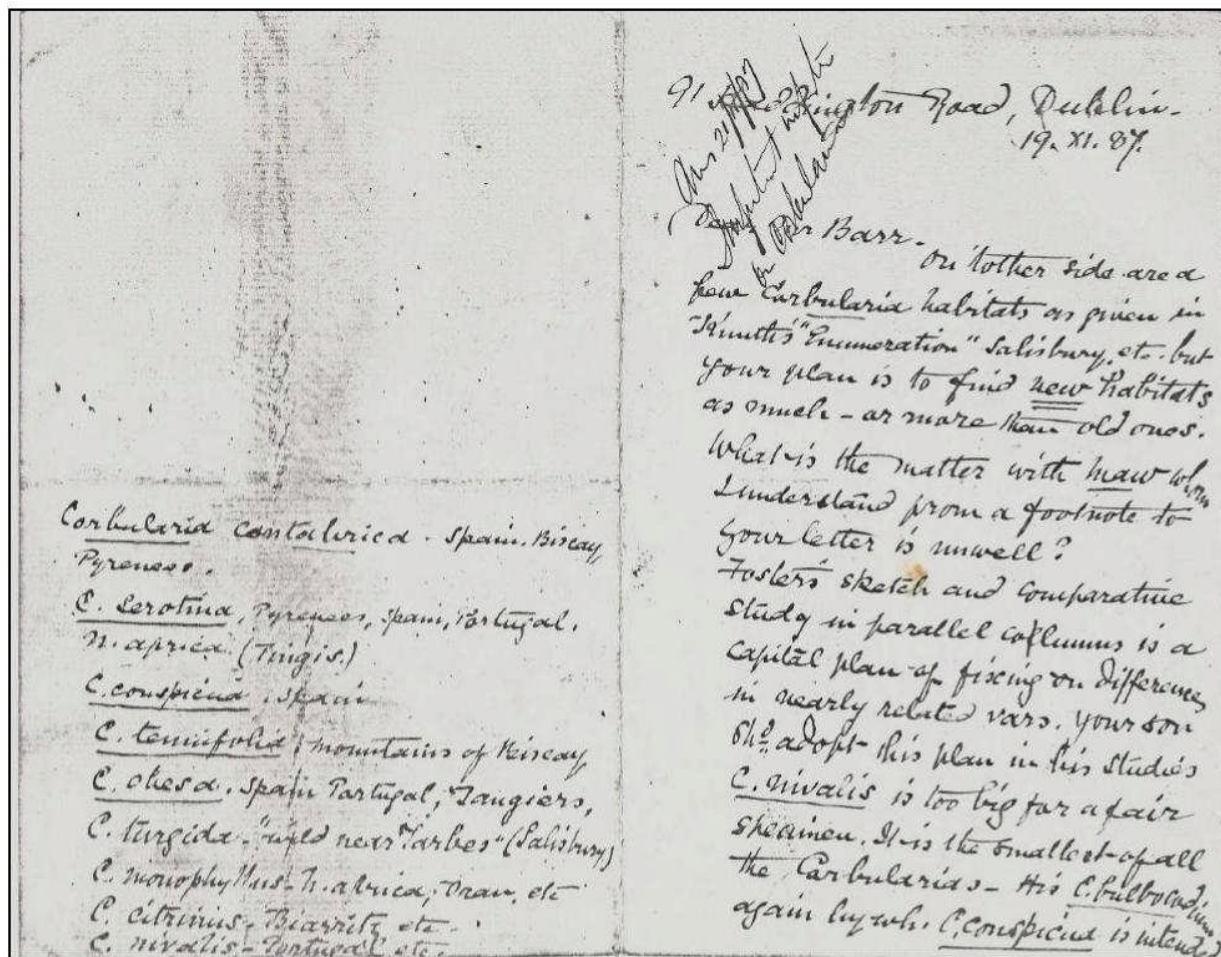 Corbularia cantabrica - Spain. Biscay
Pyrenees.
C. Serotina, Pyrenees, Spain, Portugal.
N. africa (Tingis.)
C. conspicua. Spain
C. tenuifolia, mountains of Biscay
C. obesa. Spain Portugal, Tangiers,
C. turgida - "wild near Tarbes" (Salisbury)
C. monophyllus - N. africa, Oran, etc
C. citrinus - Biarritz etc -
C. nivalis - Portugal etc.
91 Road, Dublin -
19. XI. 87.
Ans 21
on Corbularia
Barr -
on 'tother side are a
few Corbularia habitats as given in
Kunth's "Enumeration" Salisbury, etc. but
your plan is to find new habitats
as much - or more than old ones.
What is the matter with Maw whom
I understand from a footnote to
your letter is unwell?
Foster's sketch and comparative
study in parallel collumns is a
capital plan of fixing on differences
in nearly related vars. Your son
shd. adopt this plan in his studies
C. nivalis is too big for a fair
specimen. It is the smallest of all
the Corbularias - His C. bulbocodium
again by wh. C. conspicua is intended